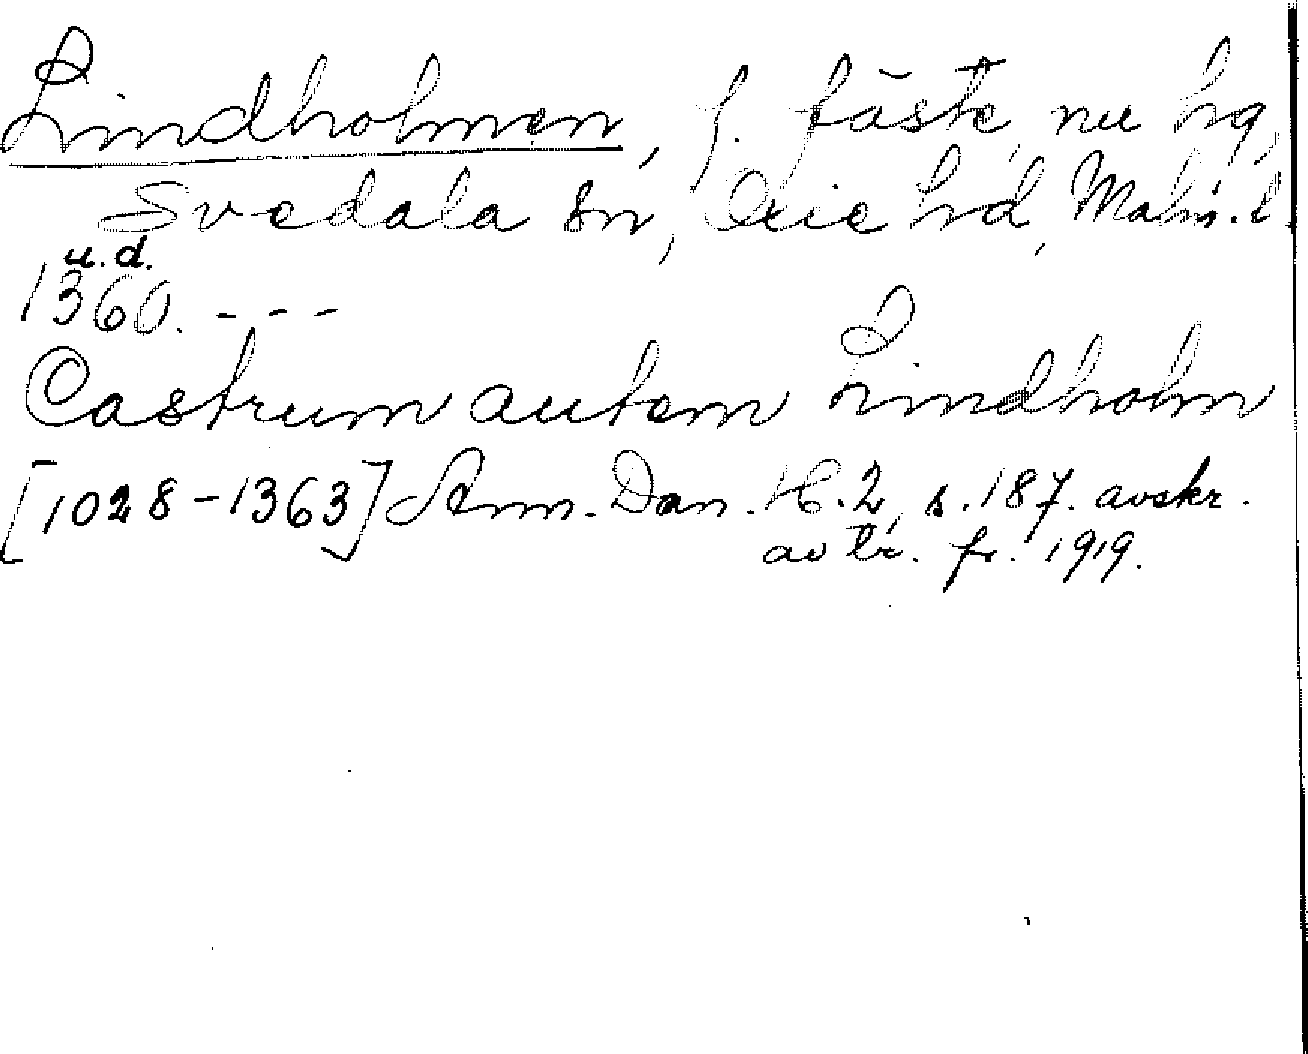 Lindholmen, f. fäste, nu hg,
Svedala sn, Oxie hd, Malm. l.
u. d.
1360. - - -
Castrum autem Lindholm
[1028-1363] Ann. Dan. H. 2, s. 187. avskr.
av tr. fr. 1919.